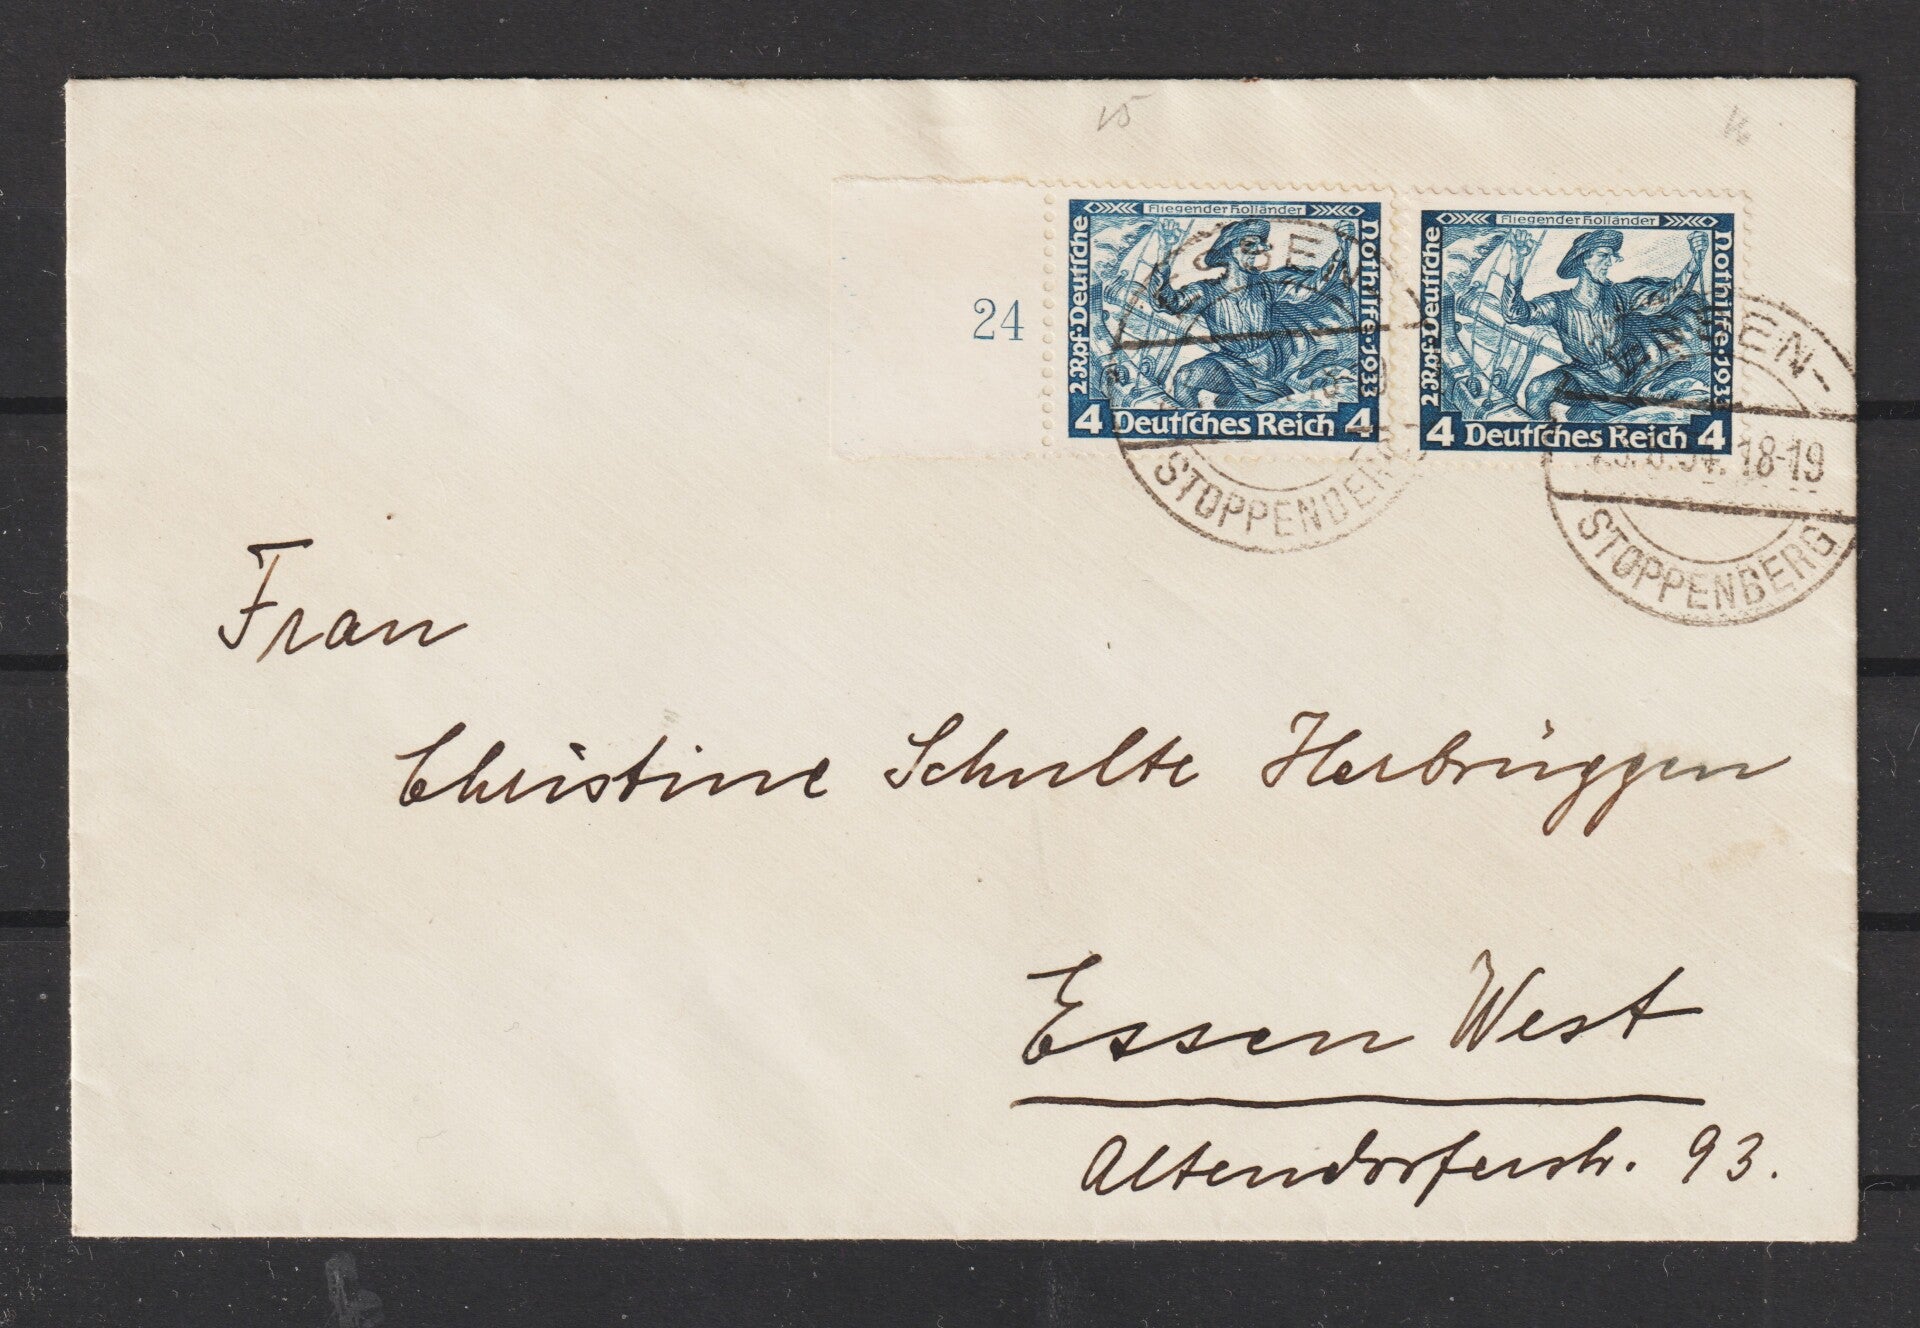 24
Fliegender Holländer
2 Rpf·Deutsche
Nothilfe·1933
4 Deutsches Reich 4
Fliegender Holländer
2 Rpf·Deutsche
Nothilfe·1933
4 Deutsches Reich 4
ESSEN-
STOPPENBERG
ESSEN-
18-19
STOPPENBERG
Frau
Christine Schulte Herbrüggen
Essen West
Altendorferstr. 93.